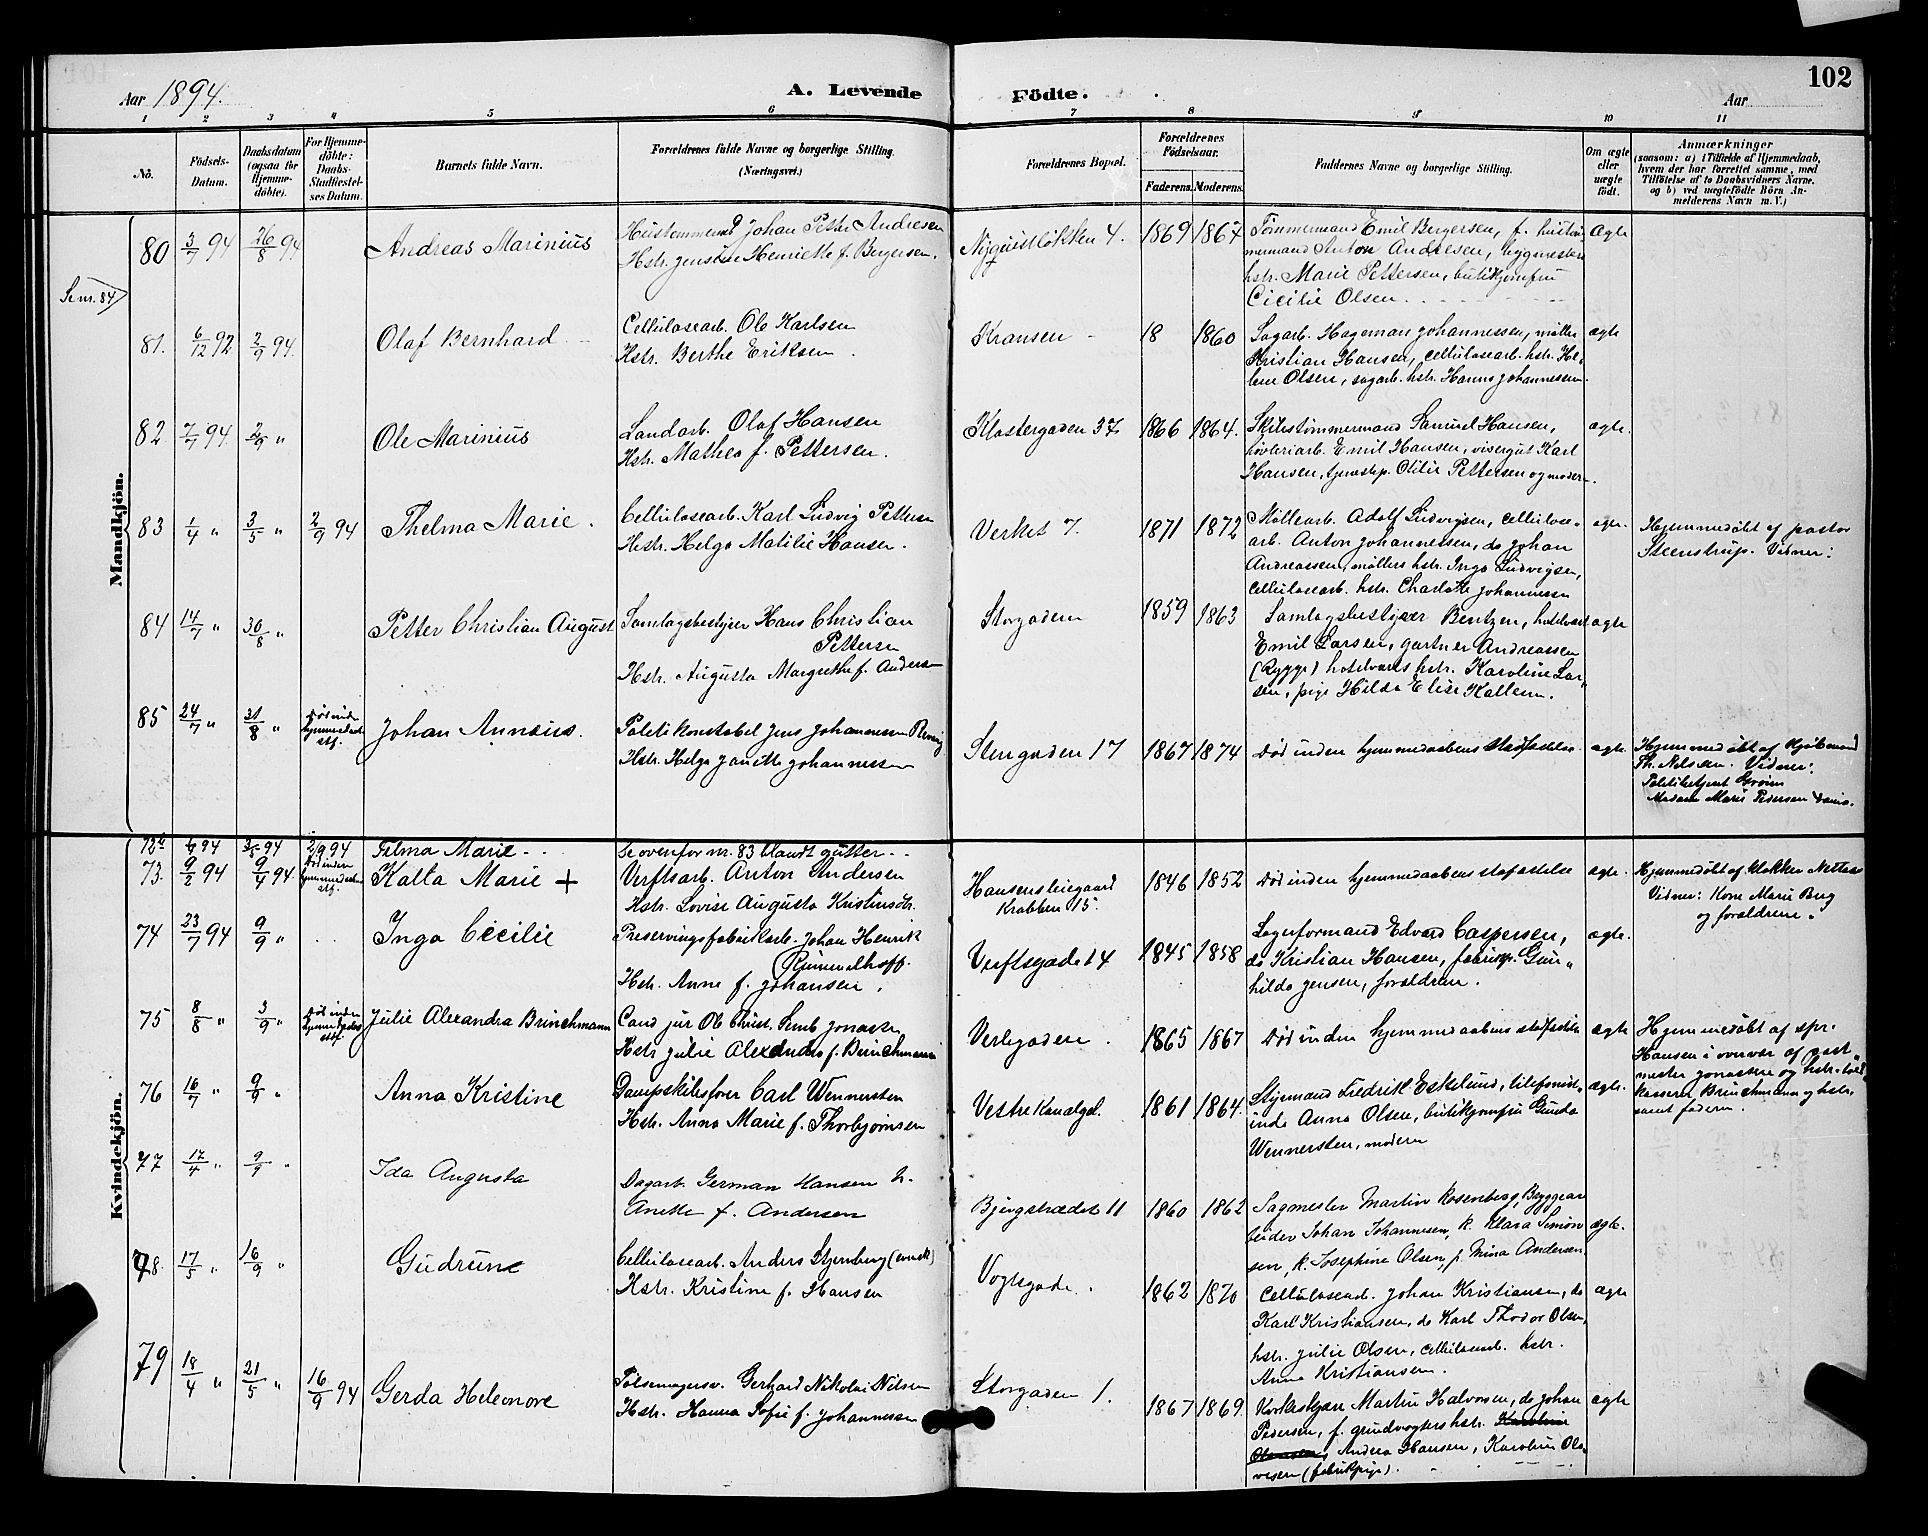 102
Aar 1894.
A. Levende Födte.
Aar
1 2 3 4 5 6 7 8 9 10 11
No.
Födsels-Datum.
Daabsdatum (ogsaa for Hjemme-döbte).
For Hjemme-döbte: Daabs-Stadfæstel-ses Datum.
Barnets fulde Navn.
Forældrenes fulde Navne og borgerlige Stilling. (Næringsvei.)
Forældrenes Bopæl.
Forældrenes Födselsaar.
Faderens. Moderens.
Faddernes Navne og borgerlige Stilling.
Om ægte eller uægte födt.
Anmærkninger
(saasom: a) i Tilfælde af Hjemmedaab,
hvem der har forrettet samme, med
Tilföielse af to Daabsvidners Navne,
og b) ved uægtefödte Börn An-
melderens Navn m. V.)
Mandkjön.
Se nr. 84
80 3/7 94 26/8 94 Andreas Marinius
Hustømmermd Johan Petter Andresen
Hstr. Jensine Henriette f. Bergersen.
Nyquistløkken 4. 1869 1867
Tømmermand Emil Bergersen, f. hustøm
mermand Anton Andresen, bygmester
hstr. Marie Pettersen, butikjomfru
Cicilie Olsen
ægte
81. 6/12 92 2/9 94. Olaf Bernhard
Cellulosearb. Ole Karlsen
Hstr. Berthe Eriksen
Kransen 18 1860
Sagarb. Hageman Johannessen, møller
Kristian Hansen, cellulosearb. hstr. He-
lene Olsen, sagarb. hstr. Hanna Johannessen.
ægte
82. 7/7 94. 2/9 " Ole Marinius
Landarb. Olaf Hansen
Hstr. Mathea f. Pettersen.
Klostergaden 37 1866 1864.
Skibstømmermand Samuel Hansen,
høvleriarb. Emil Hansen, visergut Karl
Hansen, tjenestep. Otilie Pettersen og moder
ægte.
83 1/4 " 3/5 " 2/9 94 Thelma Marie.
Cellulosearb. Karl Ludvig Pettersen
Hstr. Helga Matilie Hansen.
Verket 7. 1871 1872
Møllearb. Adolf Ludvigsen, cellulose-
arb. Anton Johannessen, do Johan
Andreassen, møllers hstr. Inga Ludvigsen,
cellulosearb. hstr. Charlotte Johannessen
ægte.
Hjemmedøbt af pastor
Steenstrup. Vidner:
84 14/7 " 30/8 " Petter Christian August
Samlagsbestyrer Hans Christian
Pettersen
Hstr. Augusta Margrethe f. Andersen
Storgaden 1859 1863
Samlagsbestyrer Bentzen, hotelvært
Emil Larsen, gartner Andreassen
(Rygge) hotelværts hstr. Karoline Lar-
sen, pige Hilda Elise Kallum.
ægte
85 24/7 " 31/8 " Død inden hjemmedaabs stf. Johan Annæus.
Politikonstabel Jens Johannessen
Hstr. Helga Janette Johannessen
Stengaden 17 1867 1874
Død inden hjemmedaabens stadfæstelse
ægte
Hjemmedøbt af Kjøbmand
Th. Nilsen. Vidner:
Politibetjent
Madam Marie Pedersen
Kvindekjön.
72a 1/4 94 3/5 94 2/9 94 Telma Marie
Se ovenfor nr. 83 blandt gutter
73. 9/2 94 9/4 94 Død inden hjemmedaabs stf. Kalla Marie +
Verftsarb. Anton Andersen
Hstr. Lovise Augusta Kristinsdtr.
Hansensleiegaard
Krabben 15. 1846 1852
Død inden hjemmedaabens stafæstelse
ægte.
Hjemmedøbt af klokker
Vidner: Kone Marie Berg
og forældrene.
74 23/7 94 9/9 " Inga Cecilie
Preservingsfabrikarb. Johan Henrik
Rummelhoff.
Hstr. Anne f. Johansen.
Verftsgade 14 1845 1858
Lagerformand Edvard Caspersen,
do Kristian Hansen, fabrikp. Gun-
hilda Jensen, forældrene.
ægte.
75 8/8 " 3/9 " Død inden hjemmedaabs stf. Julie Alexandra Brinchmann
Cand jur Ole Christ. Semb Jonassen
Hstr Julie Alexandra f. Brinchmann
Verlegaden. 1865 1867
Død inden hjemmedaabens stafæstelse
ægte
Hjemmedøbt af spr.
Hansen i overvær af post-
mester Jonassen og hstr. told
kasserer Brinchmann og hstr.
samt faderen.
76 16/7 " 9/9 " Anna Kristine
Dampskibsfører Carl Wennersten
Hstr. Anna Marie f. Thorbjørnsen
Vestre Kanalgd. 1861 1864.
Styrmand Fredrik Eskelund, telefonist-
inde Anna Olsen, butikjomfru Gunda
Wennersten, modern
ægte.
77 17/4 " 9/9 " Ida Augusta
Dagarb. German Hansen h.
Anette f. Andersen
Bjergstrædet 11 1860 1862
Sagmester Martin Rosenberg, Bryggear
beider Johan Johannesen, k. Klara Simon
sen, k. Josephine Olsen, p. Mina Andersen
ægte.
78. 17/5 " 16/9 " Gudrune
Cellulosearb. Anders Stjernberg (svensk)
Hstr. Kristine f. Hansen
Voglegade. 1862 1870
Cellulosearb. Johan Kristiansen, do
Karl Kristiansen, do Karl Thodor Olsen,
hstr. Julie Olsen, cellulosearb. hstr.
Anna Kristiansen.
ægte
79 18/4 " 21/5 " 16/9 94 Gerda Heleonore
Pølsemagersv. Gerhard Nikolai Nilsen
Hstr. Hanna Sofie f. Johannessen
Storgaden 1. 1867 1869
Korkeskjær Martin Halvorsen, do Johan
Pedersen, f. grindvogters hstr. Karoline
Olaussens Andrea Hansen, Karoline Ola-
vesen (fabrikpige).
ægte